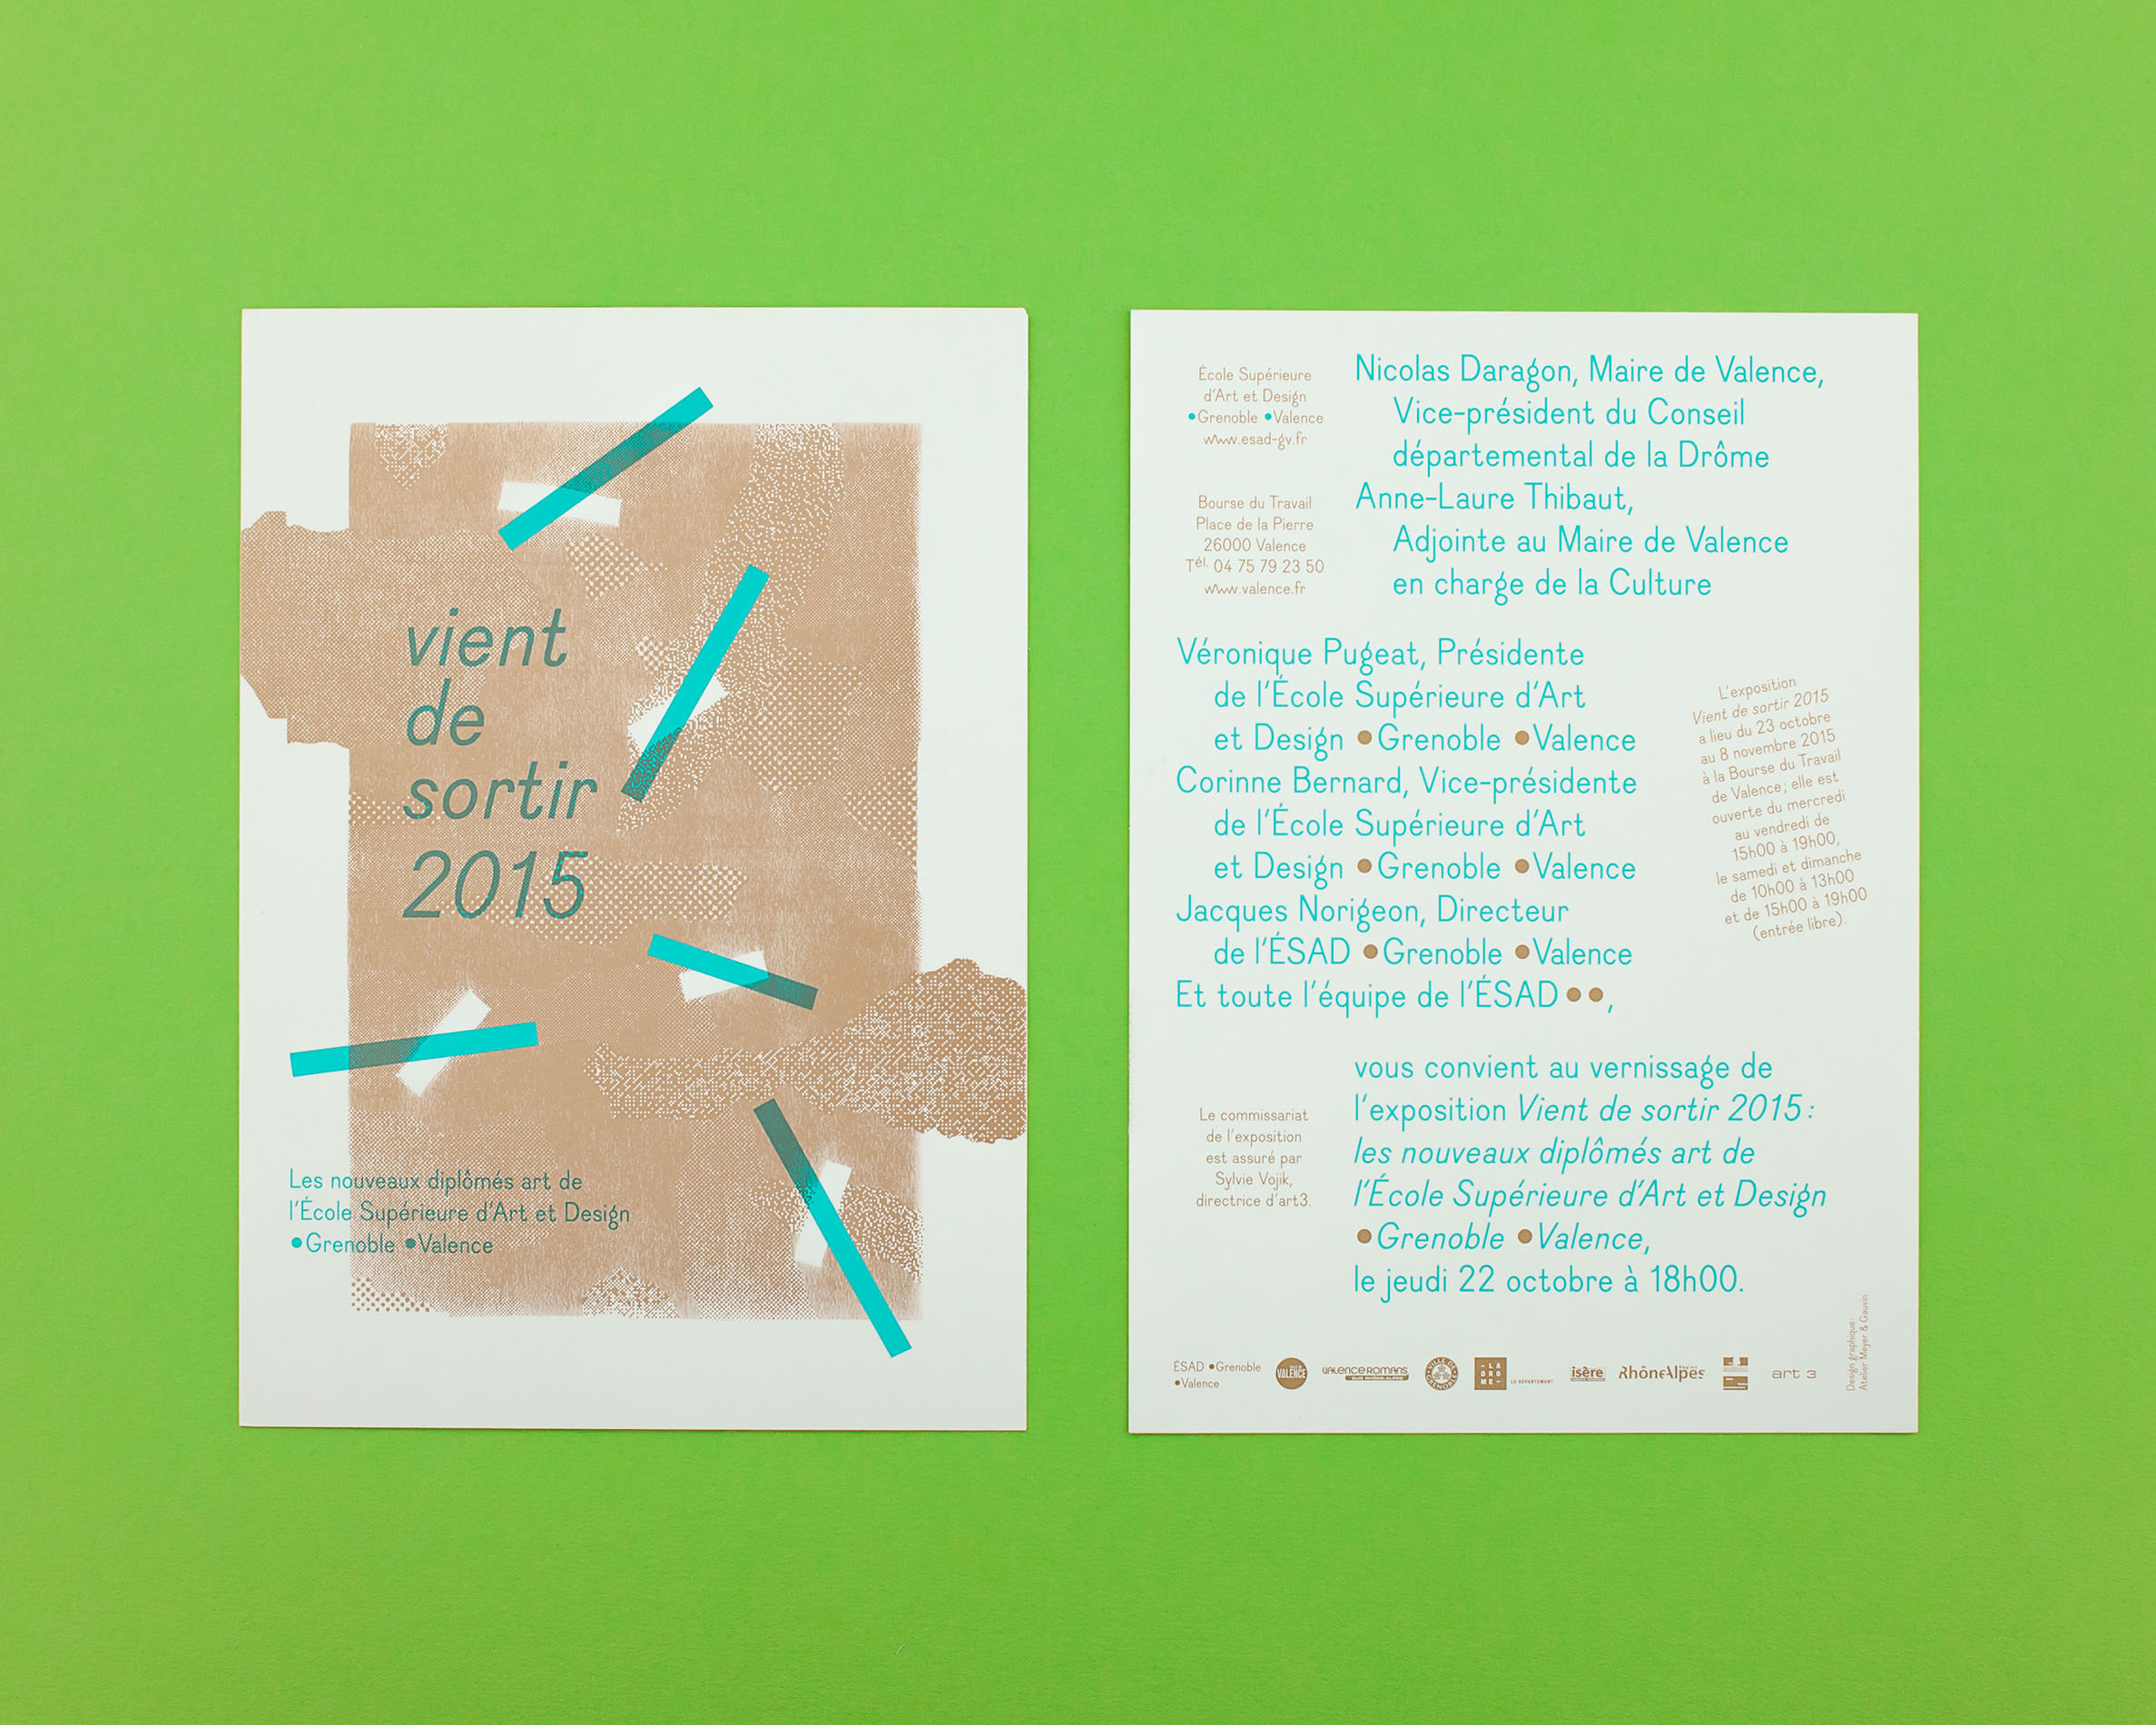 vient
de
sortir
2015
Les nouveaux diplômés art de
l'École Supérieure d'Art et Design
•Grenoble •Valence
École Supérieure
d'Art et Design
•Grenoble •Valence
www.esad-gv.fr
Bourse du Travail
Place de la Pierre
26000 Valence
Tél. 04 75 79 23 50
www.valence.fr
Nicolas Daragon, Maire de Valence,
Vice-président du Conseil
départemental de la Drôme
Anne-Laure Thibaut,
Adjointe au Maire de Valence
en charge de la Culture
Véronique Pugeat, Présidente
de l'École Supérieure d'Art
et Design •Grenoble •Valence
Corinne Bernard, Vice-présidente
de l'École Supérieure d'Art
et Design •Grenoble •Valence
Jacques Norigeon, Directeur
de l'ÉSAD •Grenoble •Valence
Et toute l'équipe de l'ÉSAD ••,
L'exposition
Vient de sortir 2015
a lieu du 23 octobre
au 8 novembre 2015
à la Bourse du Travail
de Valence; elle est
ouverte du mercredi
au vendredi de
15h00 à 19h00,
le samedi et dimanche
de 10h00 à 13h00
et de 15h00 à 19h00
(entrée libre).
Le commissariat
de l'exposition
est assuré par
Sylvie Vojik,
directrice d'art3.
vous convient au vernissage de
l'exposition Vient de sortir 2015:
les nouveaux diplômés art de
l'École Supérieure d'Art et Design
•Grenoble •Valence,
le jeudi 22 octobre à 18h00.
Design graphique:
Atelier Meyer & Gauvin
ÉSAD •Grenoble
•Valence
VILLE DE
VALENCE
VALENCE ROMANS
VILLE DE
GRENOBLE
LA
DRO
ME
LE DÉPARTEMENT
isère
RhôneAlpes
art 3